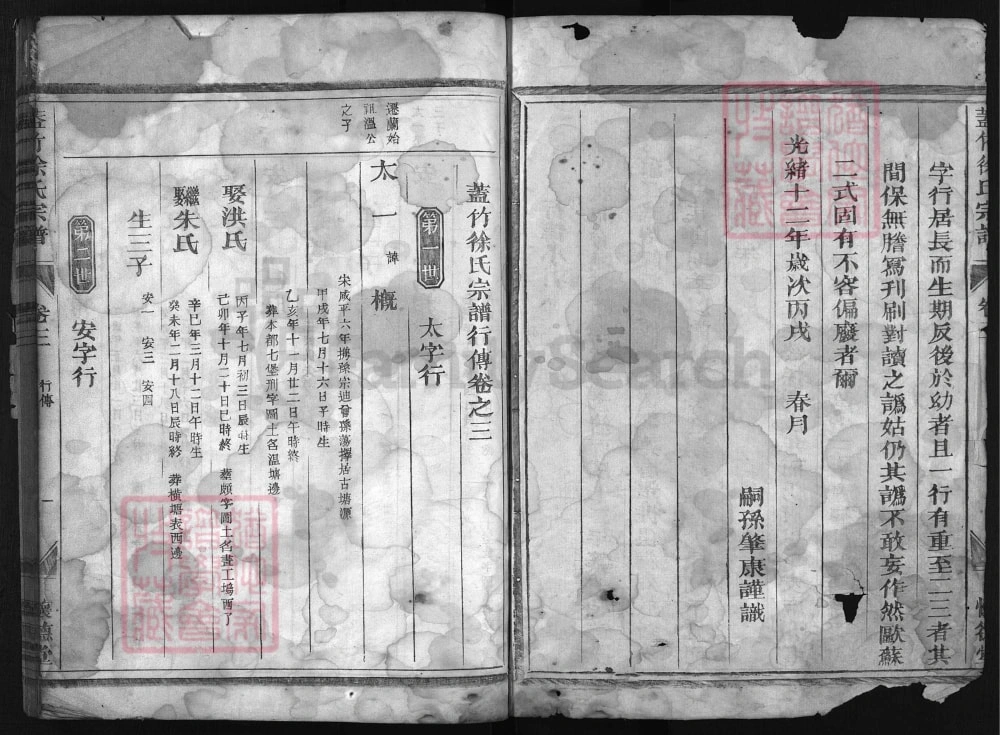 蓋竹徐氏宗譜
字行居長而生期反後於幼者且一行有重至二三者其
間保無謄寫刊刷對讀之譌姑仍其譌不敢妄作然歐蘇
二式固有不容偏廢者爾
光緒十二年歲次丙戌 春月
嗣孫肇康謹識
蓋竹徐氏宗譜行傳卷之三
第一世 太字行
遷蘭始
祖溫公
之子
太一 諱 概
宋咸平六年携孫宗迪曾孫蕩擇居古塘源
甲戌年七月十六日子時生
乙亥年十一月廿二日午時終
葬本都七堡刑字圖土名溫塘邊
娶洪氏
丙子年七月初三日辰時生
己卯年十月二十日巳時終 葬頗字圖土名畫工塢酉丁
繼娶朱氏
辛巳年三月十二日午時生
癸未年二月十八日辰時終 葬橫塘表西邊
生三子 安一 安三 安四
第二世 安字行
蓋竹徐氏宗譜 卷三 行傳 一 懷德堂